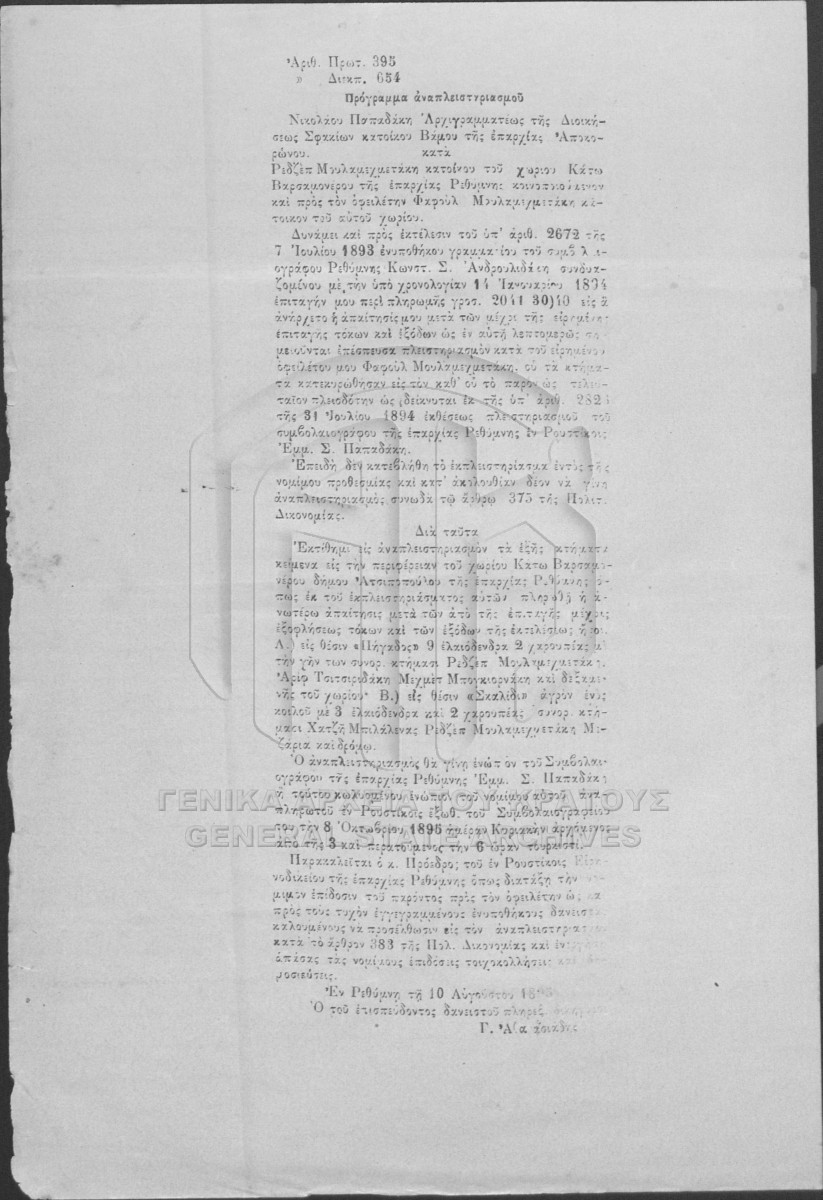 Ἀριθ. Πρωτ. 395
» Διεκπ. 654
Πρόγραμμα ἀναπλειστηριασμοῦ
Νικολάου Παπαδάκη Ἀρχιγραμματέως τῆς Διοική-
σεως Σφακίων κατοίκου Βάμου τῆς ἐπαρχίας Ἀποκο-
ρώνου. κατὰ
Ρεδζὲπ Μουλαμεχμετάκη κατοίκου τοῦ χωρίου Κάτω
Βαρσαμονέρου τῆς ἐπαρχίας Ρεθύμνης κοινοποιούμενον
καὶ πρὸς τὸν ὀφειλέτην Φαφοὺλ Μουλαμεχμετάκη κά-
τοικον τοῦ αὐτοῦ χωρίου.
Δυνάμει καὶ πρὸς ἐκτέλεσιν τοῦ ὑπ' ἀριθ. 2672 τῆς
7 Ἰουλίου 1893 ἐνυποθήκου γραμματίου τοῦ συμβολαι-
ογράφου Ρεθύμνης Κωνστ. Σ. Ἀνδρουλιδάκη συνδυα-
ζομένου μὲ τὴν ὑπὸ χρονολογίαν 14 Ἰανουαρίου 1894
ἐπιταγήν μου περὶ πληρωμῆς γροσ. 2041 30)40 εἰς ἃ
ἀνήρχετο ἡ ἀπαίτησίς μου μετὰ τῶν μέχρι τῆς εἰρημένης
ἐπιταγῆς τόκων καὶ ἐξόδων ὡς ἐν αὐτῇ λεπτομερῶς ση-
μειοῦνται ἐπέσπευσα πλειστηριασμὸν κατὰ τοῦ εἰρημένου
ὀφειλέτου μου Φαφοὺλ Μουλαμεχμετάκη, οὗ τὰ κτήμα-
τα κατεκυρώθησαν εἰς τὸν καθ' οὗ τὸ παρὸν ὡς τελευ-
ταῖον πλειοδότην ὡς δείκνυται ἐκ τῆς ὑπ' ἀριθ. 282
τῆς 31 Ἰουλίου 1894 ἐκθέσεως πλειστηριασμοῦ τοῦ
συμβολαιογράφου τῆς ἐπαρχίας Ρεθύμνης ἐν Ρουστίκοις
Ἐμμ. Σ. Παπαδάκη.
Ἐπειδὴ δὲν κατεβλήθη τὸ ἐκπλειστηρίασμα ἐντὸς τῆς
νομίμου προθεσμίας καὶ κατ' ἀκολουθίαν δέον νὰ γίνῃ
ἀναπλειστηριασμὸς συνῳδὰ τῷ ἄρθρῳ 375 τῆς Πολιτ.
Δικονομίας.
Διὰ ταῦτα
Ἐκτίθημι εἰς ἀναπλειστηριασμὸν τὰ ἑξῆς κτήματα
κείμενα εἰς τὴν περιφέρειαν τοῦ χωρίου Κάτω Βαρσαμο-
νέρου δήμου Ἀτσιποπούλου τῆς ἐπαρχίας Ρεθύμνης ὅ-
πως ἐκ τοῦ ἐκπλειστηριάσματος αὐτῶν πληρωθῇ ἡ ἀ-
νωτέρω ἀπαίτησις μετὰ τῶν ἀπὸ τῆς ἐπιταγῆς μέχρις
ἐξοφλήσεως τόκων καὶ τῶν ἐξόδων τῆς ἐκτελέσεως ἤτοι
Α.) εἰς θέσιν «Πήγαδος» 9 ἐλαιόδενδρα 2 χαρουπίας μὲ
τὴν γῆν των συνορ. κτήμασι Ρεδζὲπ Μουλαμεχμετάκη,
Ἀρὶφ Τσιτσιριδάκη Μεχμὲτ Μπογκιορνάκη καὶ δεξαμε-
νῆς τοῦ χωρίου· Β.) εἰς θέσιν «Σκαλίδι» ἀγρὸν ἑνὸς
κοιλοῦ μὲ 3 ἐλαιόδενδρα καὶ 2 χαρουπέας συνορ. κτή-
μασι Χατζῆ Μπιλάλενας Ρεδζὲπ Μουλαμεχμετάκη
καὶ δρόμῳ.
Ὁ ἀναπλειστηριασμὸς θὰ γίνῃ ἐνώπιον τοῦ Συμβολαι-
ογράφου τῆς ἐπαρχίας Ρεθύμνης Ἐμμ. Σ. Παπαδάκη
ἢ τούτου κωλυομένου ἐνώπιον τοῦ νομίμου αὐτοῦ ἀνα-
πληρωτοῦ ἐν Ρουστίκοις ἔξωθ. τοῦ Συμβολαιογραφείου
του τὴν 8 Ὀκτωβρίου 1895 ἡμέραν Κυριακὴν ἀρχόμενος
ἀπὸ τῆς 3 καὶ περατούμενος τὴν 6 ὥραν τουρκιστί.
Παρακαλεῖται ὁ κ. Πρόεδρος τοῦ ἐν Ρουστίκοις Εἰρη-
νοδικείου τῆς ἐπαρχίας Ρεθύμνης ὅπως διατάξῃ τὴν νό-
μιμον ἐπίδοσιν τοῦ παρόντος πρὸς τὸν ὀφειλέτην ὡς καὶ
πρὸς τοὺς τυχὸν ἐγγεγραμμένους ἐνυποθήκους δανειστὰς
καλουμένους νὰ προσέλθωσιν εἰς τὸν ἀναπλειστηριασμὸν
κατὰ τὸ ἄρθρον 383 τῆς Πολ. Δικονομίας καὶ
ἁπάσας τὰς νομίμους ἐπιδόσεις τοιχοκολλήσεις καὶ δη-
μοσιεύσεις.
Ἐν Ρεθύμνῃ τῇ 10 Αὐγούστου 1895
Ὁ τοῦ ἐπισπεύδοντος δανειστοῦ πληρεξ.
Γ.
ΓΕΝΙΚΑ ΑΡΧΕΙΑ ΤΟΥ ΚΡΑΤΟΥΣ
GENERAL STATE ARCHIVES